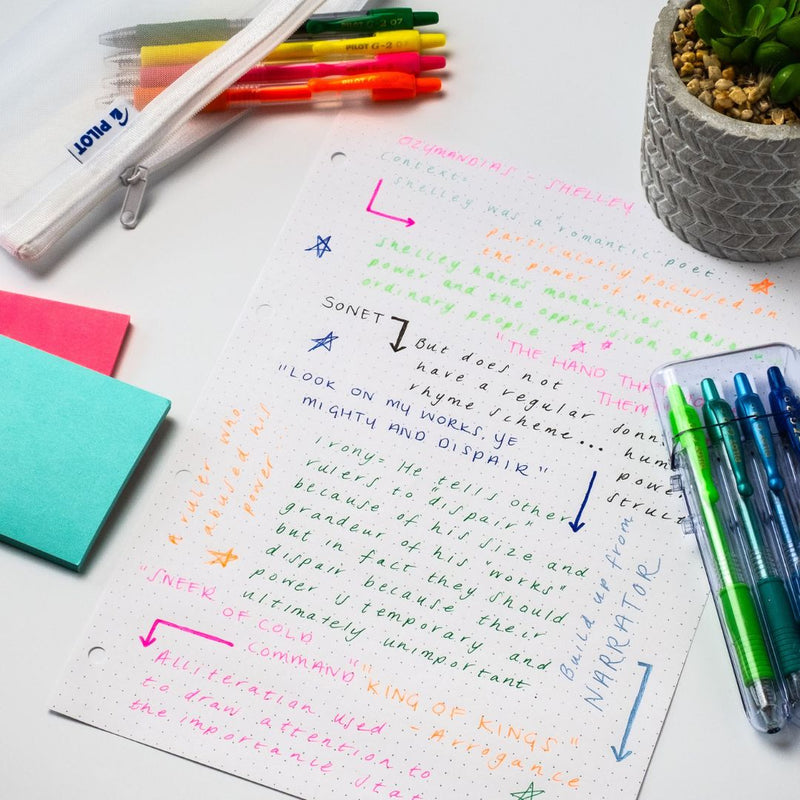 PILOT G-2 07
PILOT G-2 07
PILOT
PILOT
OZYMANDIAS - SHELLEY
Context:
Shelley was a "romantic poet
particularly focussed on
the power of nature
Shelley hates monarchies, abso
power and the oppression of
ordinary people
SONET
But does not
have a regular
rhyme scheme...
"THE HAND THA
THEM
donn
hum
powe
struct
"LOOK ON MY WORKS, YE
MIGHTY AND DISPAIR"
A ruler who
abused his
power
Irony= He tells other
rulers to "dispair"
because of his size and
grandeur of his "works"
but in fact they should
dispair because their
power is temporary and
ultimately unimportant.
Build up from
NARRATOR
"SNEER OF COLD
COMMAND"
Alliteration used
to draw attention to
the importance stat
"KING OF KINGS"
- Arrogance